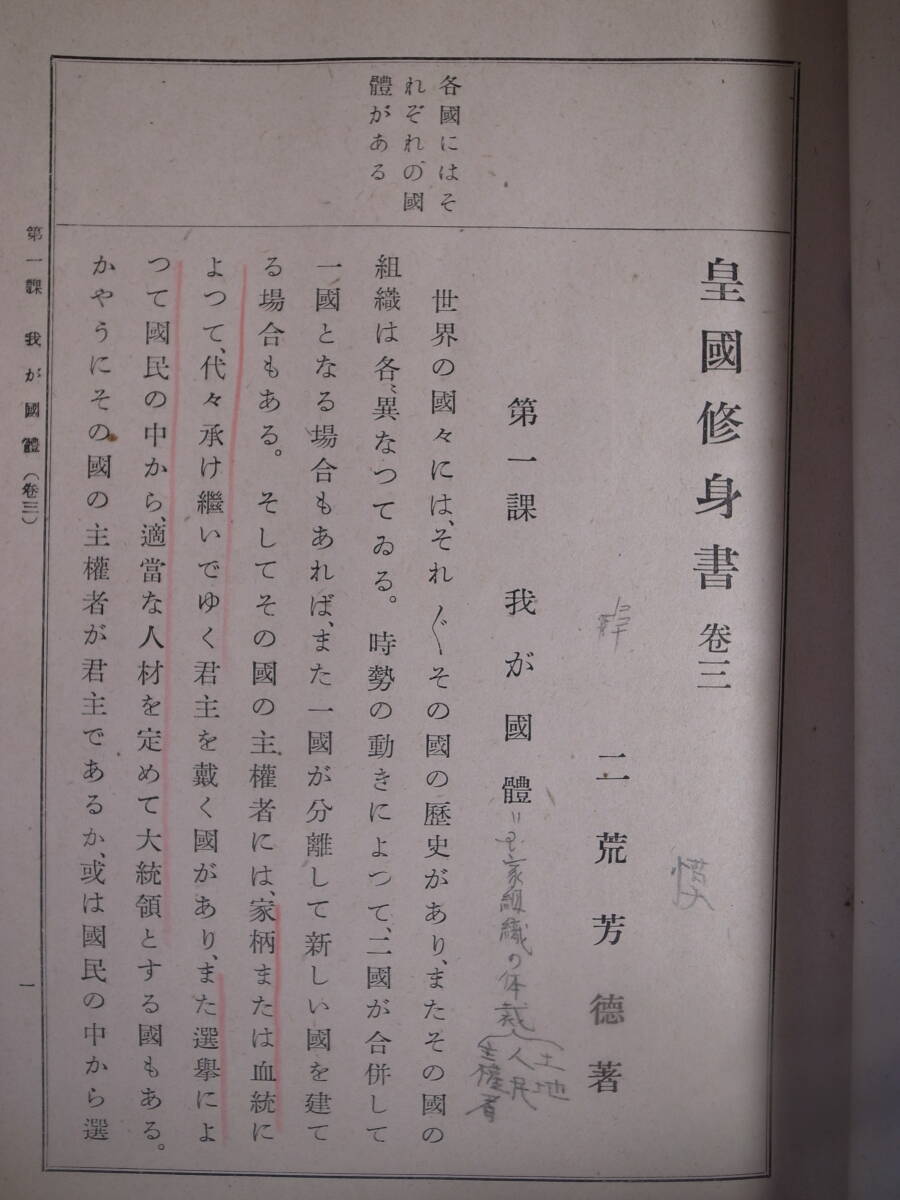 皇國修身書 卷三
二荒芳德著
第一課 我が國體
=
家組織の体裁
土地
人民
主權者
各國にはそ
れぞれの國
體がある
世界の國々には、それ〴〵その國の歷史があり、またその國の
組織は各〻異なつてゐる。時勢の動きによつて、二國が合併して
一國となる場合もあれば、また一國が分離して新しい國を建て
る場合もある。そしてその國の主權者には、家柄または血統に
よつて、代々承け繼いでゆく君主を戴く國があり、また選擧によ
つて國民の中から、適當な人材を定めて大統領とする國もある。
かやうにその國の主權者が君主であるか、或は國民の中から選
第一課 我が國體(卷三)
一